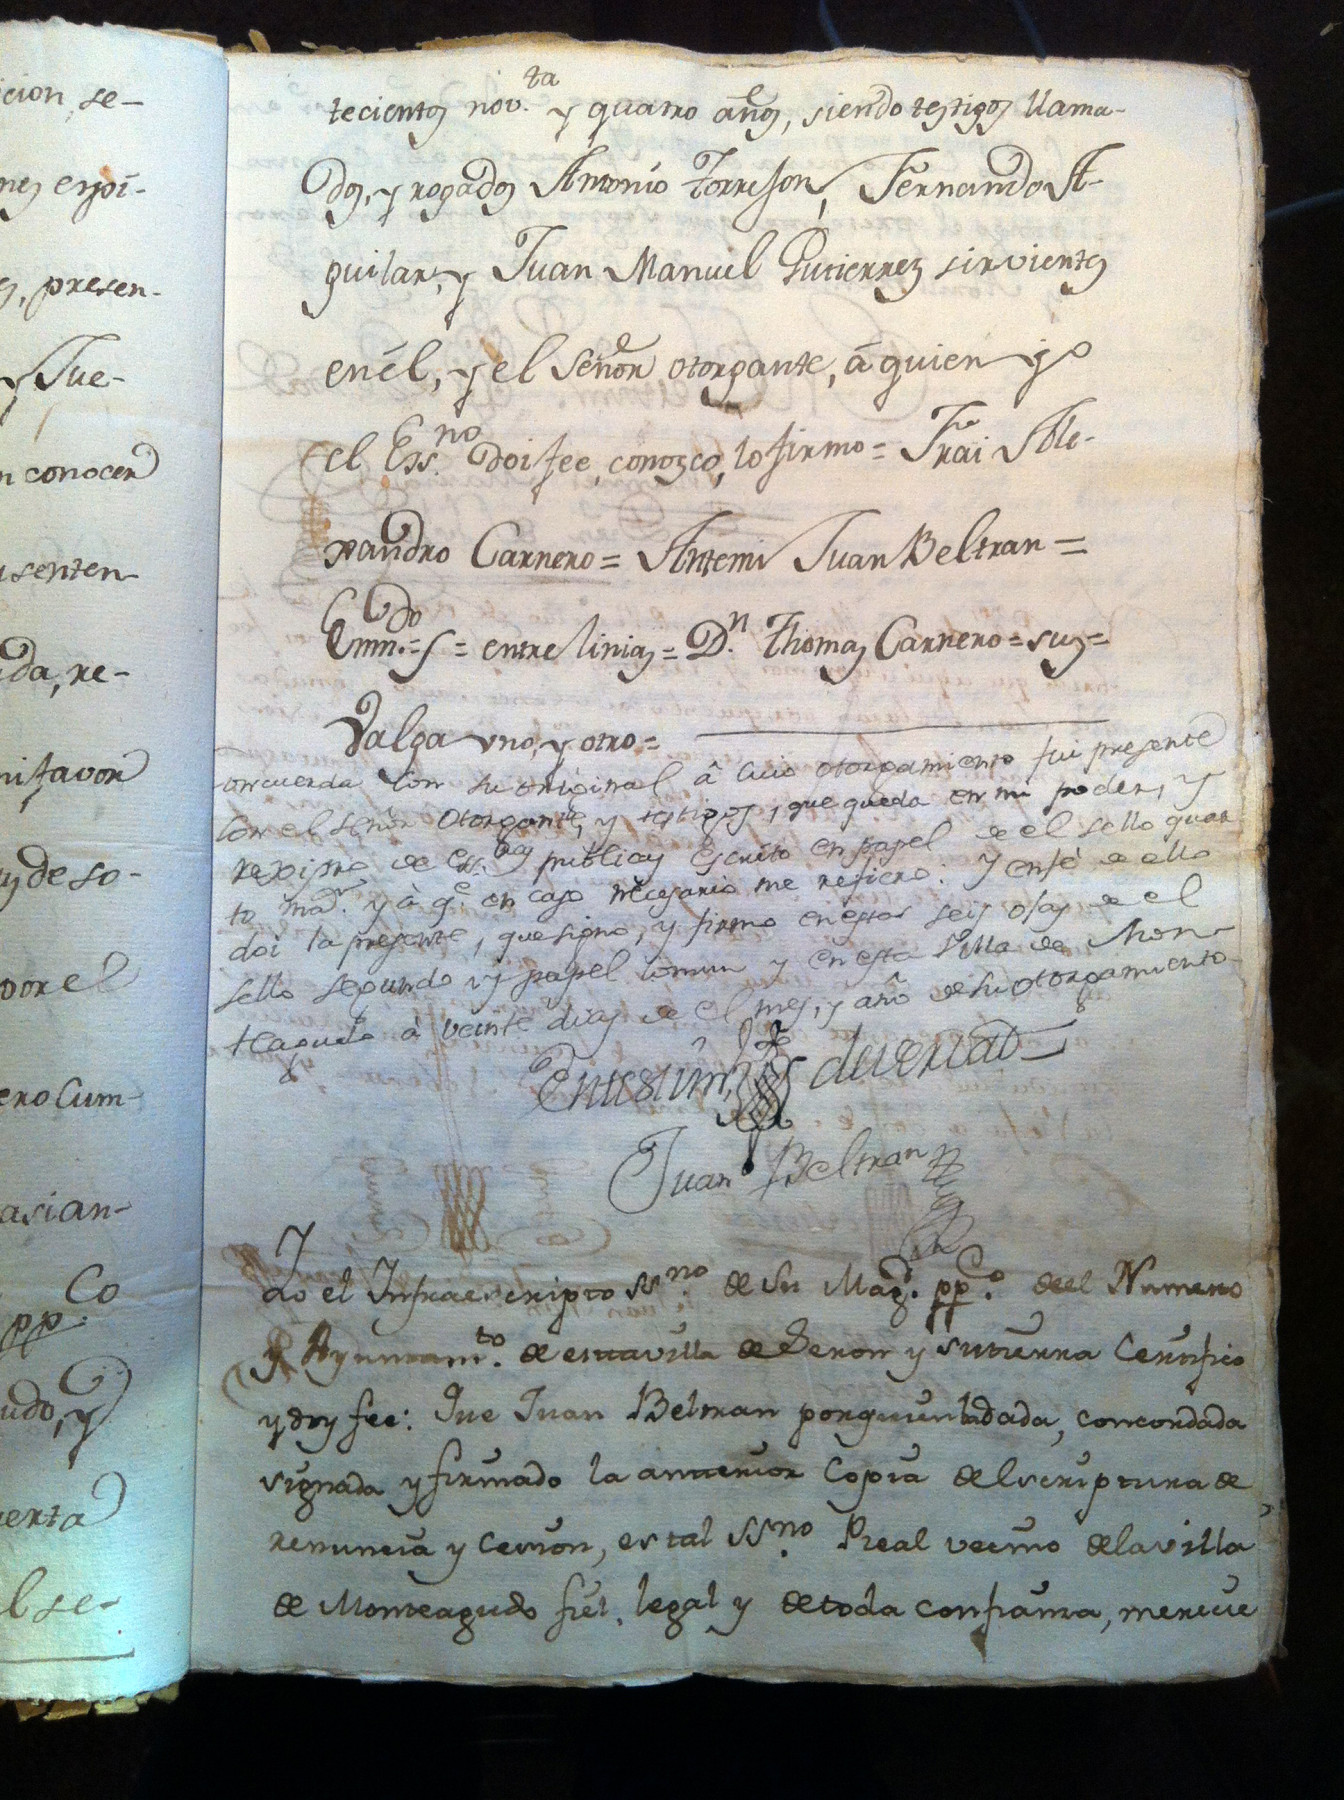 cion, se-
nes expi-
s, presen-
y Jue-
n conocer
senten-
da, re-
mi favor
y de so-
por el
ero Cum-
asian-
pp.co
udo, y
uerta
el se-
tecientos nov.ta y quatro años, siendo testigos llama-
dos, y rogados Antonio Torrejon, Fernando A-
guilar, y Juan Manuel Gutierrez sirvientes
en él, y el Señor otorgante, á quien yo
el Ess.no doi fee, conozco, lo firmo = Frai Ale-
xandro Carnero = Antemi Juan Beltran =
Enm.do = s = entre linias = D.n Thomas Carnero = sus =
Valga uno, y otro =
Concuerda con su original â cuio otorgamiento fui presente
con el señor Otorgante, y testigos, que queda en mi poder, y
rexistro de ess.ras publicas escrito en papel de el sello quar-
to ma.r y à q.e en caso necesario me refiero: Y en fé de ello
doi la presente, que signo, y firmo en estas seis ojas de el
sello segundo y papel comun y en esta Villa de Mon-
teagudo á veinte dias de el mes, y año de su otorgamiento
En testim.o de verdad
Juan Beltran
Yo el Infraescripto ss.no de Su Mag.d pp.co del Numero
y Ayuntam.to de esta villa de Seron y su tierra Certifico
y doy fee: Que Juan Beltran por quien dada, concordada
signada y firmado la anterior Copia de lscriptura de
renuncia y cesion, es tal ss.no Real vecino de la villa
de Monteagudo fiel, legal y de toda confianza, merece